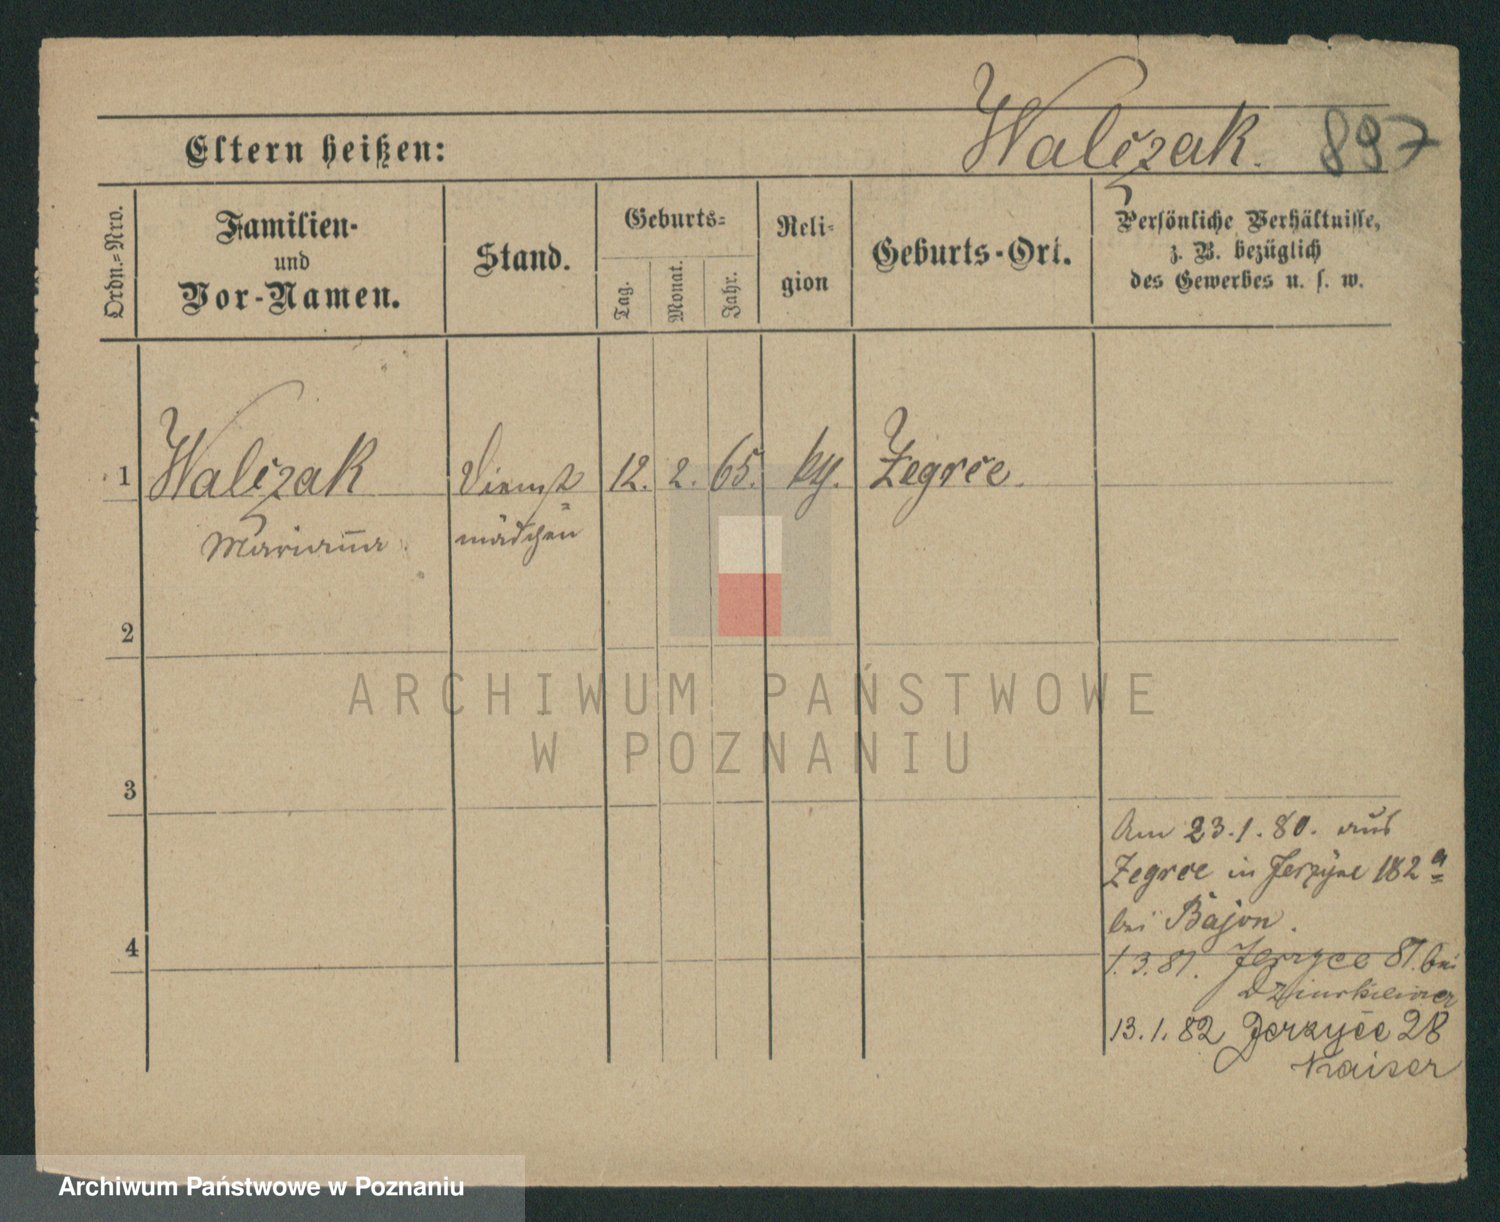 Walczak. 897
Eltern heißen:
Ordn.=Nro.
Familien-
und
Vor-Namen.
Stand.
Geburts=
Tag.
Monat.
Jahr.
Reli=
gion
Geburts-Ort.
Persönliche Verhältnisse,
z. B. bezüglich
des Gewerbes u. s. w.
1 Walczak Dienst 12. 2. 65. Zegrze.
Marianna mädchen
2
3
4
ARCHIWUM PAŃSTWOWE
W POZNANIU
Am 23.1.80. aus
Zegrze in 182 a
bei Bajon.
1.3.81. Jerzyce 87. bei
13.1.82 Jerzyce 28
Kaiser
Archiwum Państwowe w Poznaniu